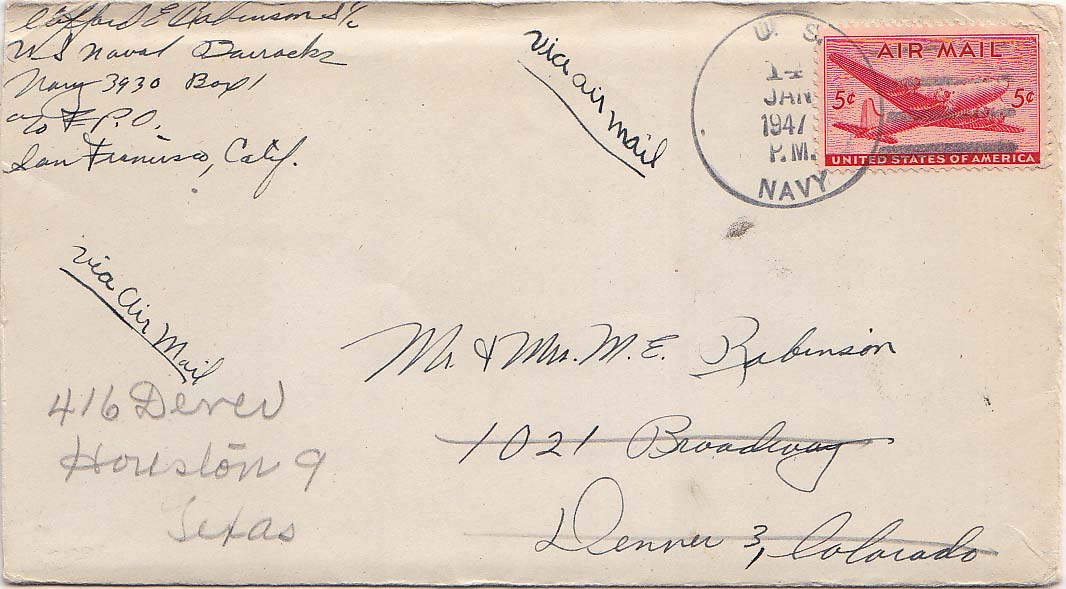 Clifford E Robinson S 1/c
U S Naval Barracks
Navy 3930 Box 1
c/o F.P.O.
San Francisco, Calif.
Via air mail
U. S.
14
JAN
1947
P.M.
NAVY
AIR MAIL
5¢ 5¢
UNITED STATES OF AMERICA
Via Air Mail
Mr. & Mrs. M. E. Robinson
1021 Broadway
Denver 3, Colorado
416
Houston 9
Texas